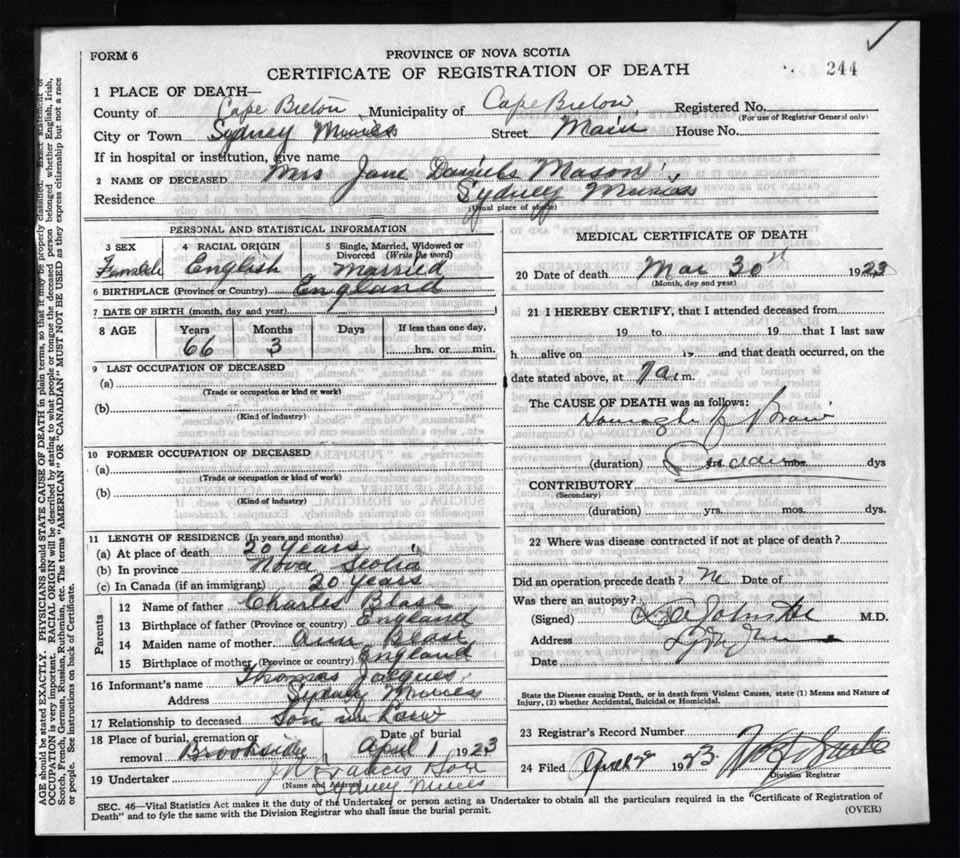 FORM 6
PROVINCE OF NOVA SCOTIA
CERTIFICATE OF REGISTRATION OF DEATH
244
1 PLACE OF DEATH—
County of Cape Breton Municipality of Cape Breton Registered No.
(For use of Registrar General only)
City or Town Sydney Mines Street Main House No.
If in hospital or institution, give name
2 NAME OF DECEASED Mrs Jane Daniels Mason
Residence Sydney Mines
(Usual place of abode)
PERSONAL AND STATISTICAL INFORMATION
3 SEX 4 RACIAL ORIGIN 5 Single, Married, Widowed or Divorced (Write the word)
English Married
6 BIRTHPLACE (Province or Country) England
7 DATE OF BIRTH (month, day and year)
8 AGE Years Months Days If less than one day,
66 3 hrs. or min.
9 LAST OCCUPATION OF DECEASED
(a)
(Trade or occupation or kind or work)
(b)
(Kind of industry)
10 FORMER OCCUPATION OF DECEASED
(a)
(Trade or occupation or kind or work)
(b)
(Kind of industry)
11 LENGTH OF RESIDENCE (In years and months)
(a) At place of death 20 years
(b) In province Nova Scotia
(c) In Canada (if an immigrant) 20 years
Parents
12 Name of father Charles Blase
13 Birthplace of father (Province or country) England
14 Maiden name of mother Ann Blase
15 Birthplace of mother (Province or country) England
16 Informant's name Thomas Jacques
Address Sydney Mines
17 Relationship to deceased Son in Law
18 Place of burial, cremation or removal Brookside Date of burial April 1 1923
19 Undertaker J W Francis
(Name and Address) Sydney Mines
MEDICAL CERTIFICATE OF DEATH
20 Date of death Mar 30st 1923
(Month, day and year)
21 I HEREBY CERTIFY, that I attended deceased from
19 to 19 that I last saw
h alive on 19 and that death occurred, on the
date stated above, at 7 a m.
The CAUSE OF DEATH was as follows:
(duration) yrs. mos. dys
CONTRIBUTORY
(Secondary)
(duration) yrs. mos. dys.
22 Where was disease contracted if not at place of death?
Did an operation precede death? No Date of
Was there an autopsy?
(Signed) M.D.
Address
Date
State the Disease causing Death, or in death from Violent Causes, state (1) Means and Nature of
Injury, (2) whether Accidental, Suicidal or Homicidal.
23 Registrar's Record Number
24 Filed April 2 1923
Division Registrar
SEC. 46—Vital Statistics Act makes it the duty of the Undertaker or person acting as Undertaker to obtain all the particulars required in the "Certificate of Registration of
Death" and to fyle the same with the Division Registrar who shall issue the burial permit.
(OVER)
AGE should be stated EXACTLY. PHYSICIANS should STATE CAUSE OF DEATH in plain terms, so that it may be properly classified. Exact statement of
OCCUPATION is very important. RACIAL ORIGIN will be described by stating to what people or tongue the deceased person belonged whether English, Irish,
Scotch, French, German, Russian, Ruthenian, etc. The terms "AMERICAN" OR "CANADIAN" MUST NOT BE USED as they express citizenship but not a race
or people. See instructions on back of Certificate.